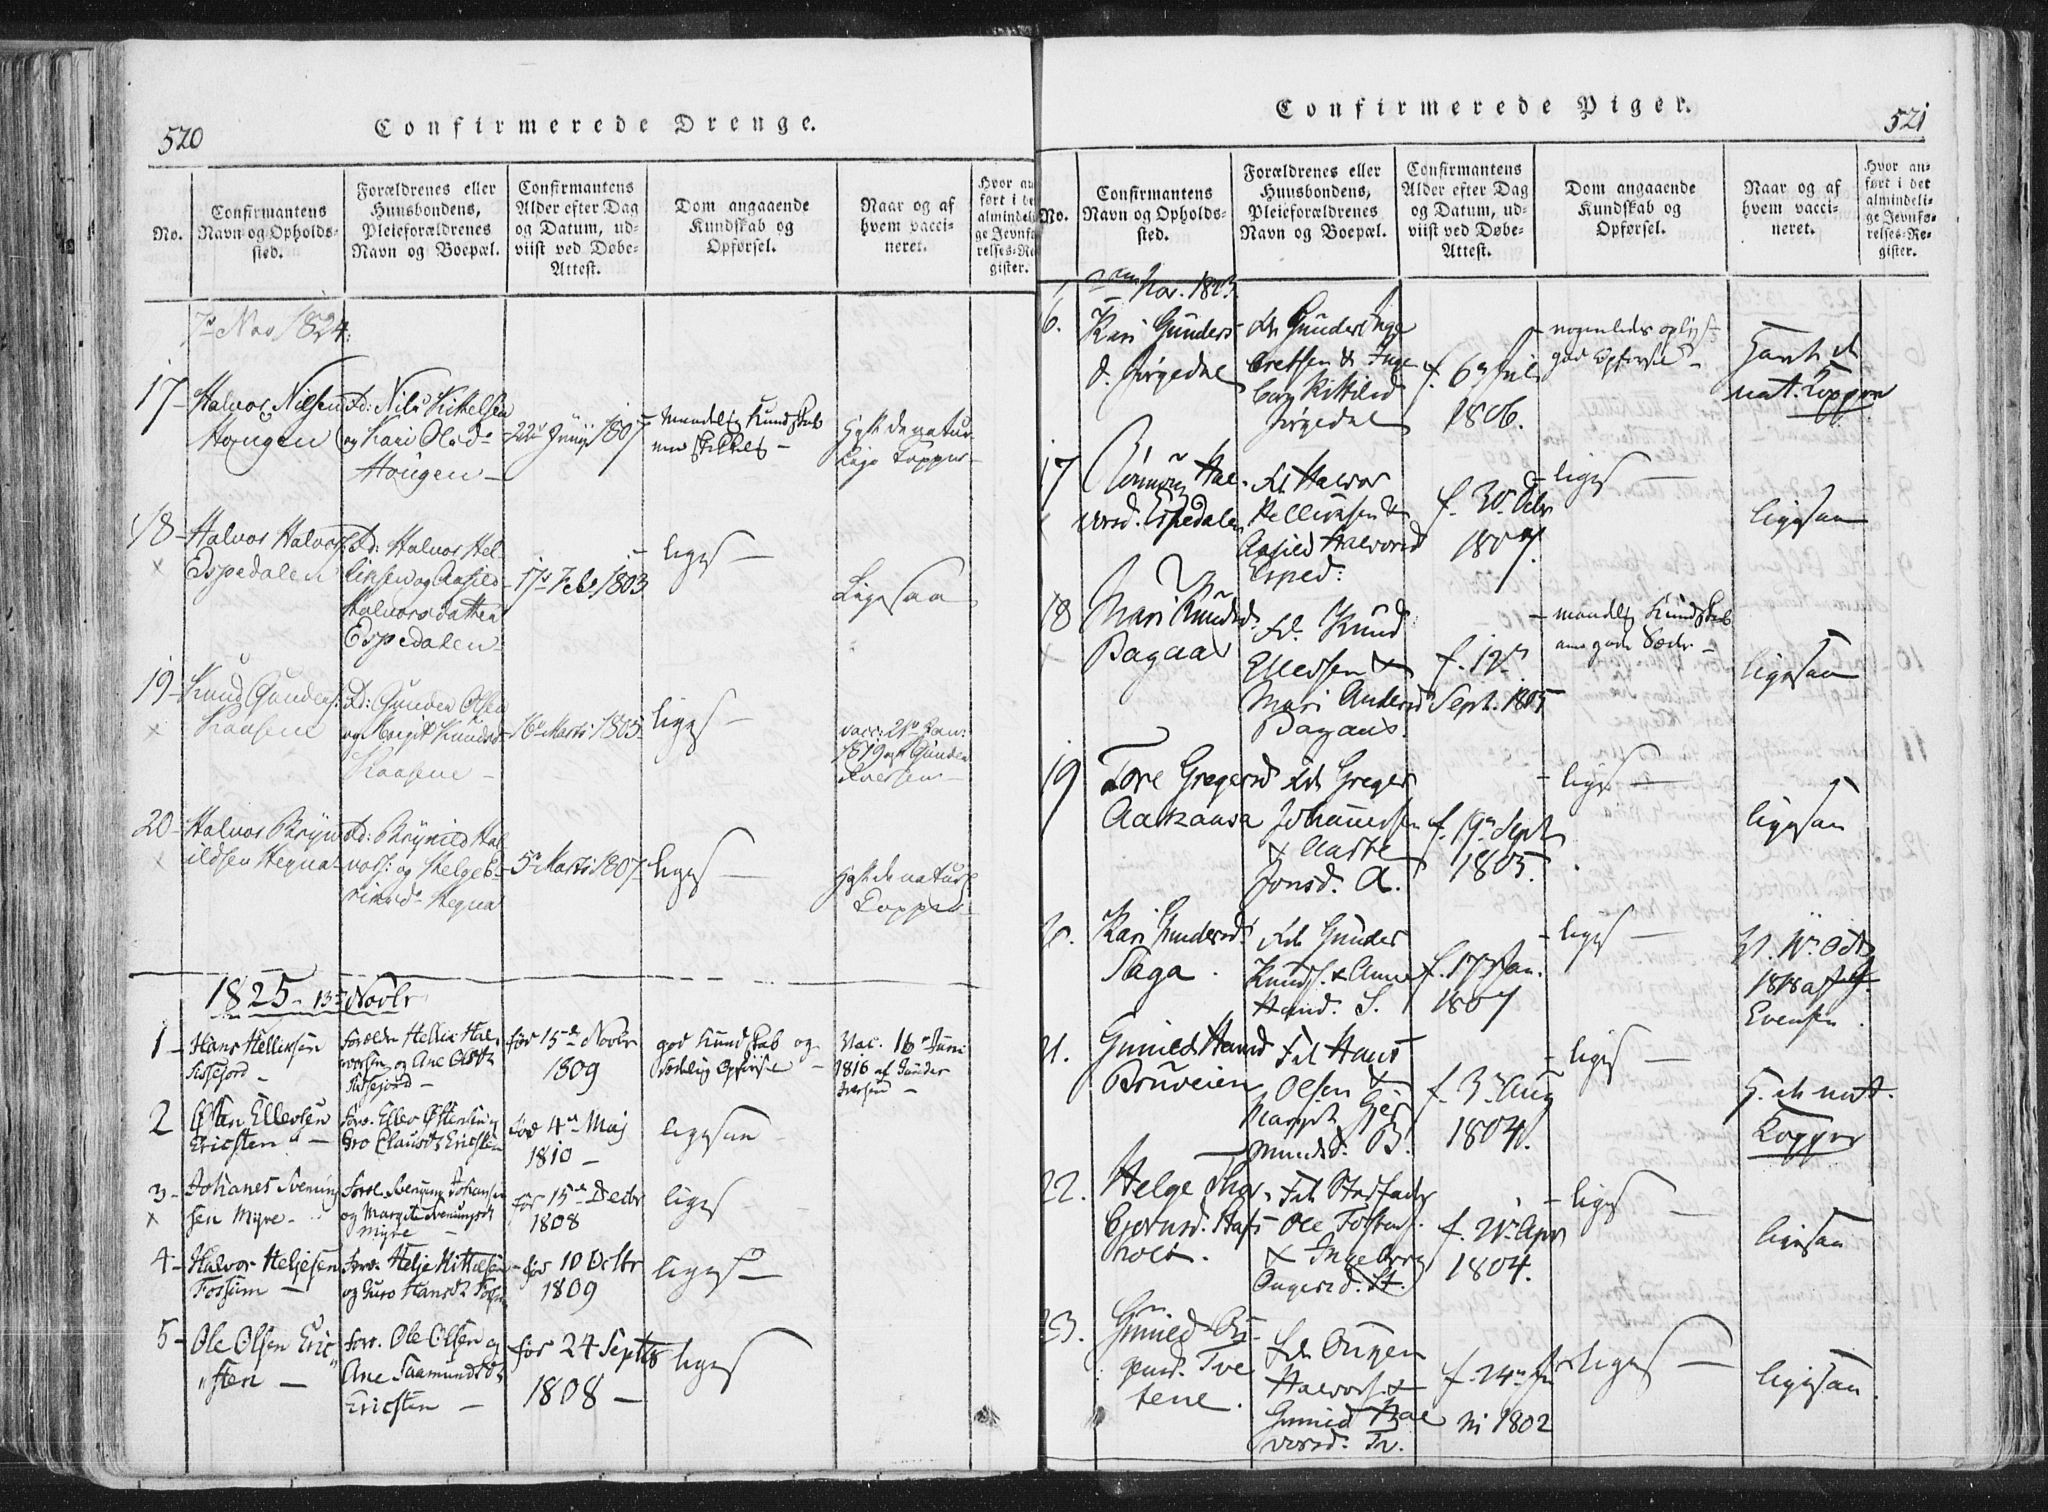 520
Confirmerede Drenge.
No.
Confirmantens
Navn og Opholds-
sted.
Forældrenes eller
Huusbondens,
Pleieforældrenes
Navn og Boepæl.
Confirmantens
Alder efter Dag
og Datum, ud-
viist ved Døbe-
Attest.
Dom angaaende
Kundskab og
Opførsel.
Naar og af
hvem vacci-
neret.
Hvor an
ført i de
almindel
ge Jevnfø
relses-Re
gister.
7de Nov 1824.
17 - Halvor Nielsen
Hougen
Fd: Nils Kittelsen
og Kari Ols D.
Hougen -
22 Juny 1807
Maadelig Kundskab
-
havt de natur-
lige Kopper -
18 - Halvor Halvors.
Espedalen
Fd: Halvor Hel
liksen og Aasild
Halvorsdatter
Espedalen -
17 Feb. 1803
liges -
Ligesaa
19 - Knud Gunders.
Kaasene
Fd: Gunder Olsen
og Birgit Knuds
Kaasene -
16 Marts 1805
liges -
vacc: 21 Jan:
1819 af Gunder
Iversen -
20 - Halvor Bryn
ildsen Hegna
Fd: Brynild Hal
vors. og Helge
Hegna
5 Marts 1807
liges -
havt de naturl
Kopper -
1825 - 13de Novbr
1 - Hans Helliksen
Tissejord -
Forældre Hellik Hal
vorsen og Ane Olsdtr
Tissejord -
før 15de Novbr
1809
god Kundskab og
sædelig Opførsel -
Vac. 16 Juni
1816 af Gunder
Iversen -
2 Østen Ellevsen
Ericsten -
Foræ. Ellev Østensen og
Gro Clausdtr Ericsten
fød 4de Maj
1810 -
ligesaa
3 - Johanes Svenung
sen Myre -
Foræl Svenung Johansen
og Margit Svenungsdtr
Myre -
før 15de Decbr
1808
liges
4 - Halvor Heljesen
Fossum -
Foræ. Helje Kittilsen
og Guro Hansdtr Fossum
- før 10 Octbr
1809
liges -
5 - Ole Olsen Eric
"sten -
Foræ. Ole Olsen og
Ane Saamundsdtr
Ericsten -
før 24 Septbr
1808 -
liges
Confirmerede Piger.
521
No.
Confirmantens
Navn og Opholds-
sted.
Forældrenes eller
Huusbondens,
Pleieforældrenes
Navn og Boepæl.
Confirmantens
Alder efter Dag
og Datum, ud-
viist ved Døbe-
Attest.
Dom angaaende
Kundskab og
Opførsel.
Naar og af
hvem vacci-
neret.
Hvor an-
ført i det
almindeli-
ge Jevnfø-
relses-Re-
gister.
Nov. 1823.
6. Kari Gunders
d. Jørgedal
Fdr Gunder Inge
bretsen & Inge
borg Kittilsd
Jørgedal
f. 6 Juli
1806.
nogenledes oplyst
god Opførsel -
Havt de
nat. Kopper
17 Rønnoug Hal-
vorsd. Espedalen
Fdr Halvor
Helliksen &
Aasild Halvorsd
Esped:
f. 30
1807.
- liges -
ligesaa
18 Mari Knudsd.
Bagaas
Fdr. Knud
Ellevsen &
Mari Andersd
Bagaas.
f. 12
Sept. 1805
- maadelig Kundskab
gode Sæder -
ligesaa
19 Tore Gregersd
Fdr Greger
Johannessen
& Aaste
Jonsd. A.
f. 19 Sept
1805.
- liges -
ligesaa
20. Kari Gundersd.
Saga.
Fdr Gunder
Knuds. & Anne
Hansd. S.
f. 17 Jan.
1807
- liges -
1818 af G.
Evensen.
21. Gunild Hansd
Bruveien
Fdr Hans
Olsen &
Margit Ger
mundsd. B.
f. 3 Aug
1804.
- liges -
H. de nat.
Kopper
22. Helge Thor-
bjørnsd. Stafs
holt.
Fdr Stedfader
Ole Tostens.
& Ingeborg
St.
f. 21 Apr
1804.
- liges -
ligesaa
23. Gunild Ou-
gensd. Tve
tene.
Fdr Ougen
Halvors. &
Gunild Hal
vorsd. Tv.
f. 24 Ju
ni 1802
liges -
ligesaa.